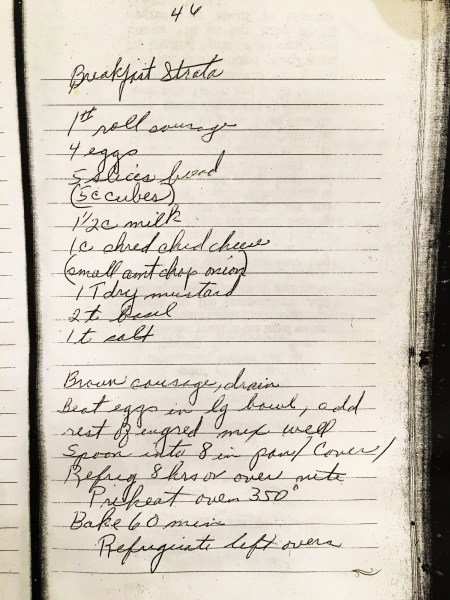 46
Breakfast Strata
1# roll sausage
4 eggs
5 slices bread
(5c cubes)
1 1/2 c milk
1c shred ched cheese
(small amt chop onion)
1 T dry mustard
2 t Basil
1 t salt
Brown sausage, drain
Beat eggs in lg bowl, add
rest of ingred mix well
Spoon into 8 in pan / Cover /
Refrig 8 hrs or over nite
Preheat oven 350°
Bake 60 min
Refrigirate left overs